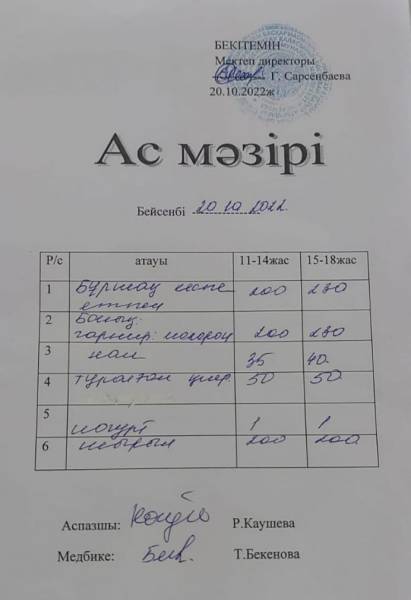 БЕКІТЕМІН
Мектеп директоры
Г. Сарсенбаева
20.10.2022ж
Ас мәзірі
Бейсенбі 20 10 2022.
Р/с атауы 11-14жас 15-18жас
1 Бұршақ кеспе 200 230
етпен
2 Балық
гарнир: макарон 200 230
3 нан 35 40
4 туралған 50 50
5
иогурт 1 1
6 200 200
Аспазшы: Р.Каушева
Медбике: Бек. Т.Бекенова